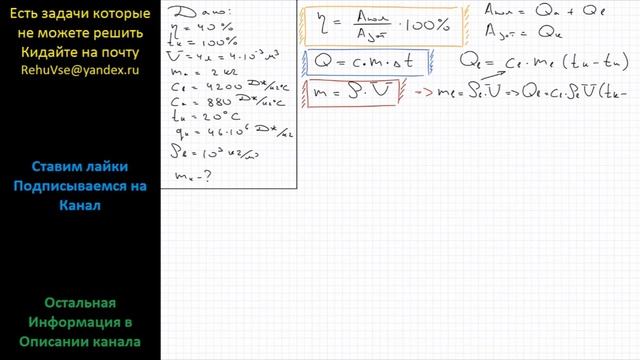 Есть задачи которые
не можете решить
Кидайте на почту
RehuVse@yandex.ru
Ставим лайки
Подписываемся на
Канал
Остальная
Информация в
Описании канала
Дано:
η = 40%
tк = 100%
V = 4л = 4·10⁻³ м³
mа = 2 кг
cв = 4200 Дж/кг°C
cа = 880 Дж/кг°C
tн = 20°C
qк = 46·10⁶ Дж/кг
ρв = 10³ кг/м³
mк - ?
η = Aпол / Aзат · 100%
Q = c·m·Δt
m = ρ·V
Aпол = Qа + Qв
Aзат = Qк
Qв = cв·mв (tк - tн)
=> mв = ρв·V => Qв = cв·ρвV(tк -